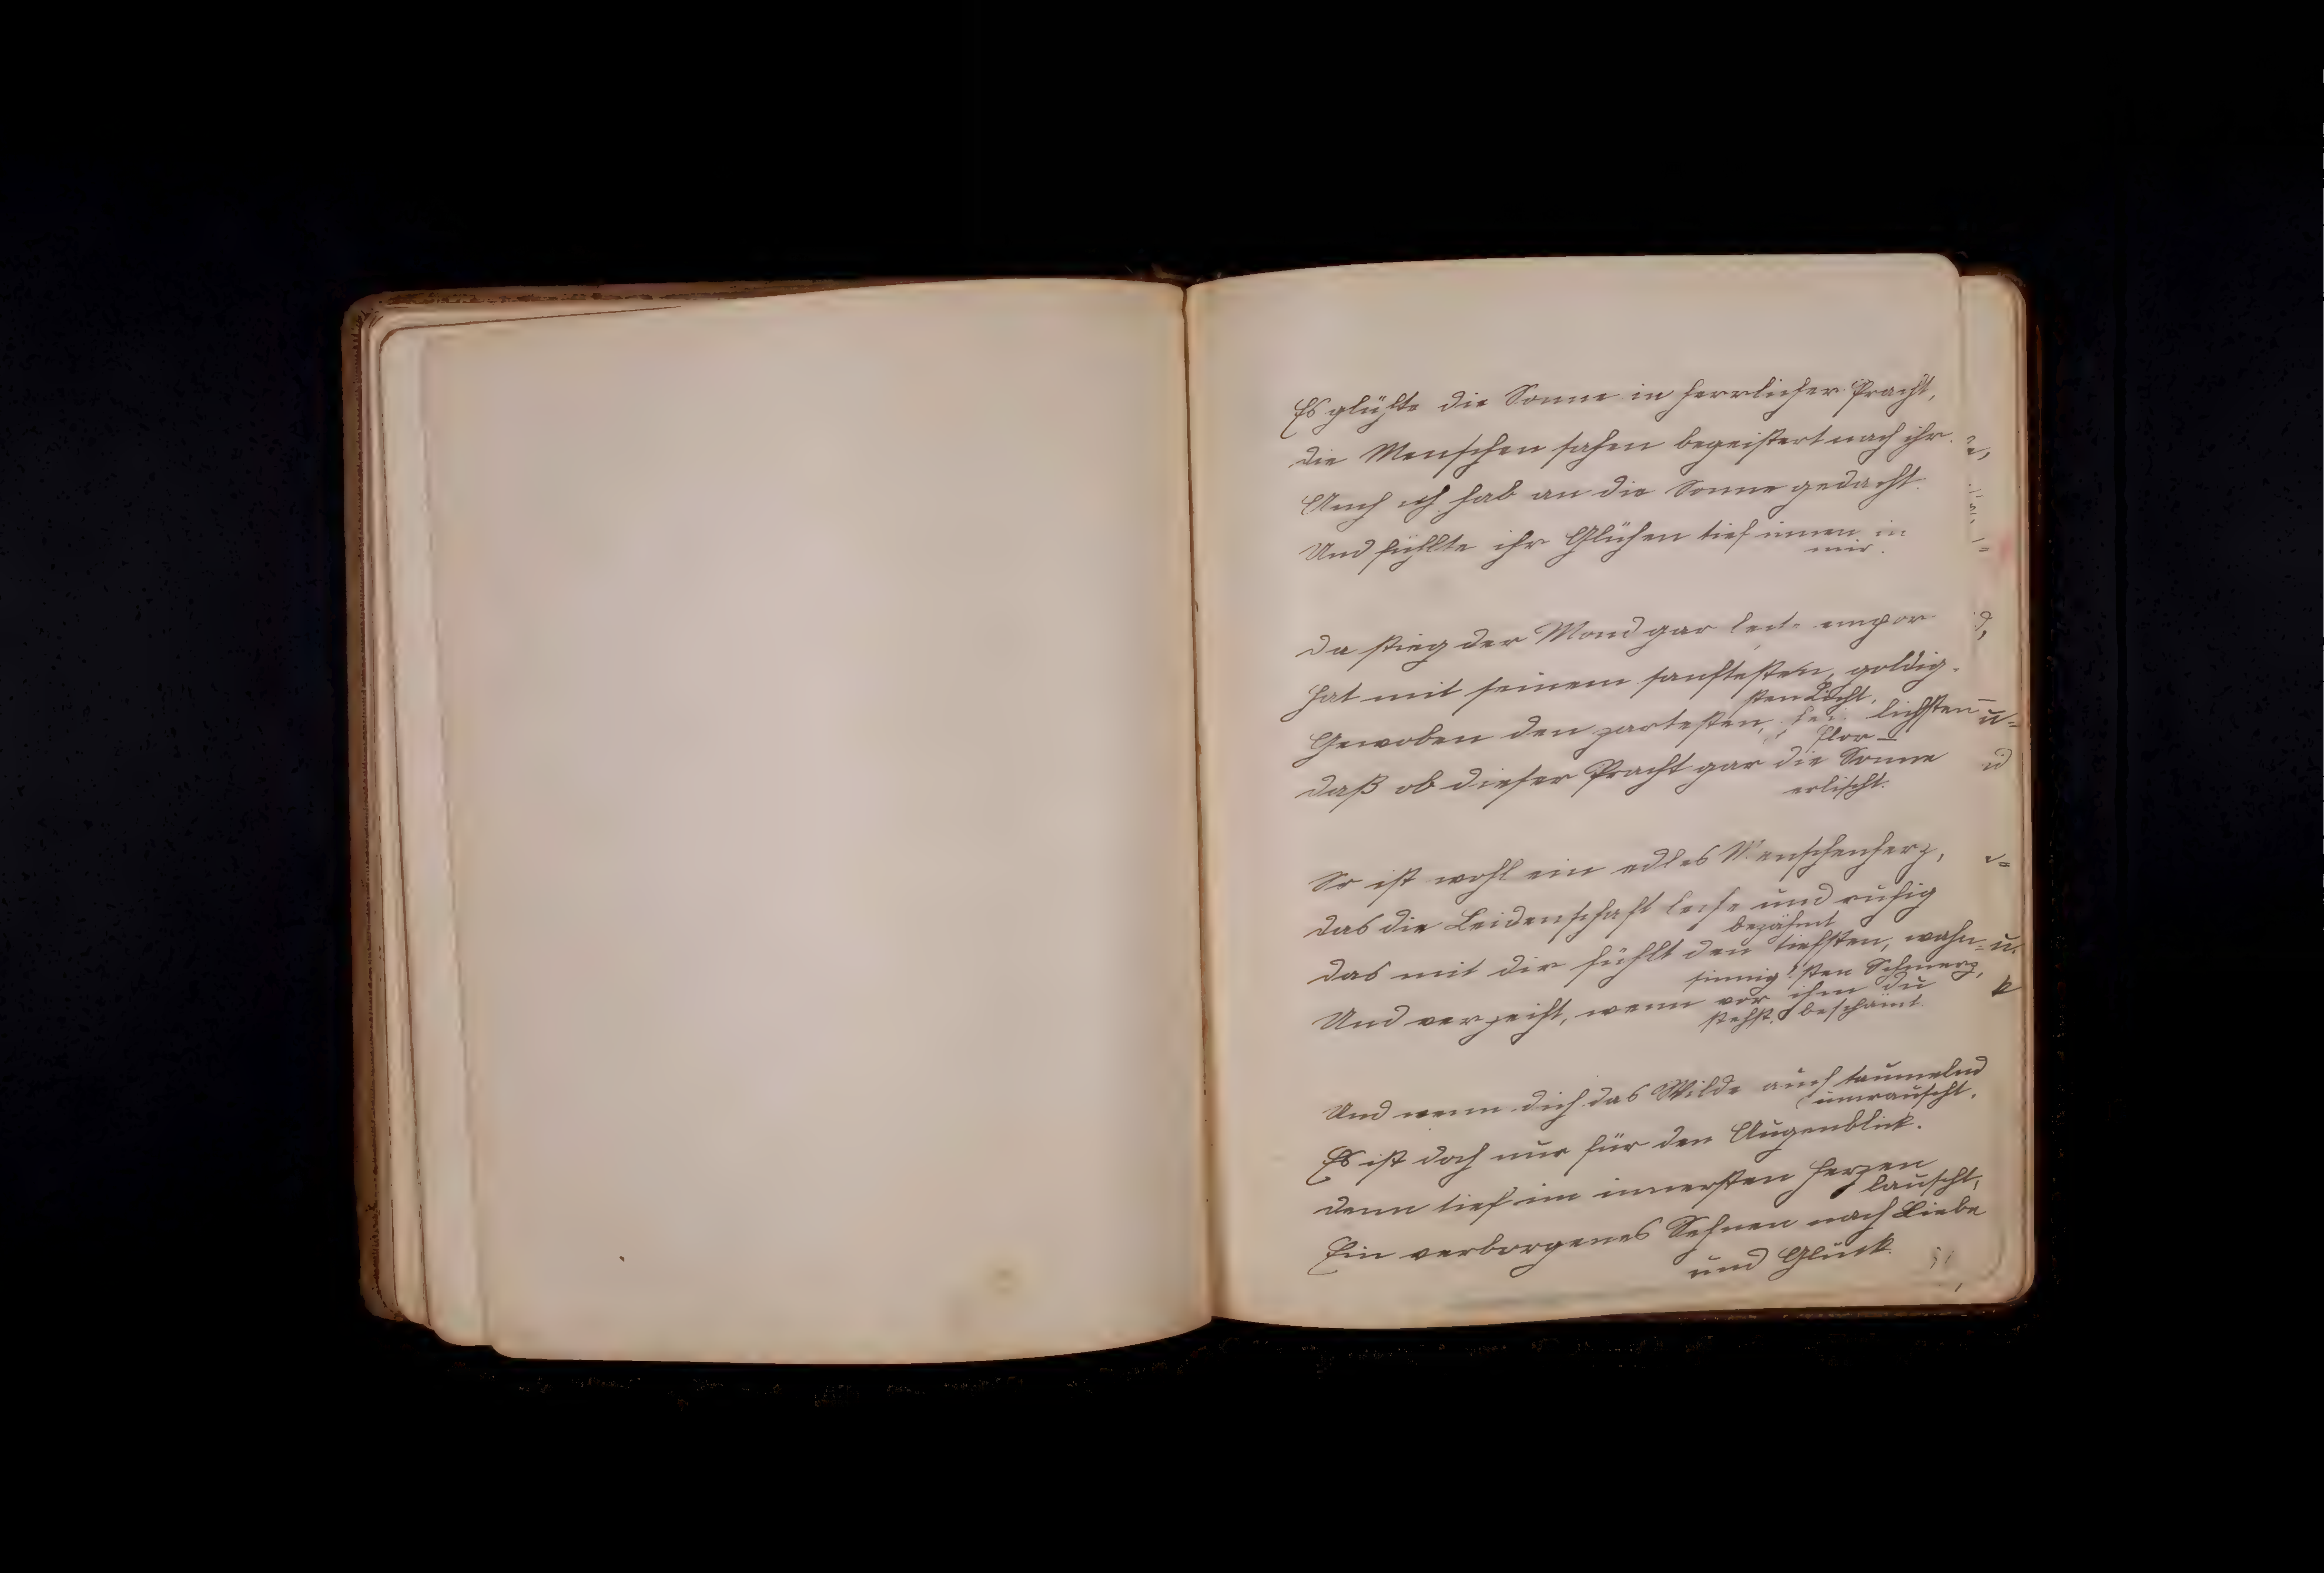 Es glühte die Sonne in herrlicher Pracht,
die Menschen sahen begeistert nach ihr.
Auch ich hab an die Sonne gedacht.
Und fühlte ihr Glühen tief innen in
mir.
Da stieg der Mond gar empor
hat mit seinem sanftesten, goldig-
sten Licht,
Gewoben den zartesten, lichsten
Flor –
daß ob dieser Pracht gar die Sonne
erlischt.
So ist wohl ein edles Menschenherz,
das die Leidenschaft leise und ruhig
bezähmt
das mit dir fühlt den tiefsten, wahn-
sinnigsten Schmerz,
Und verzeiht, wenn vor ihm du
stehst beschämt.
Und wenn dich das Wilde auch taumelnd
umrauscht.
Es ist doch nur für den Augenblick.
denn tief im innersten Herzen
lauscht,
Ein verborgenes Sehnen nach Liebe
und Glück.